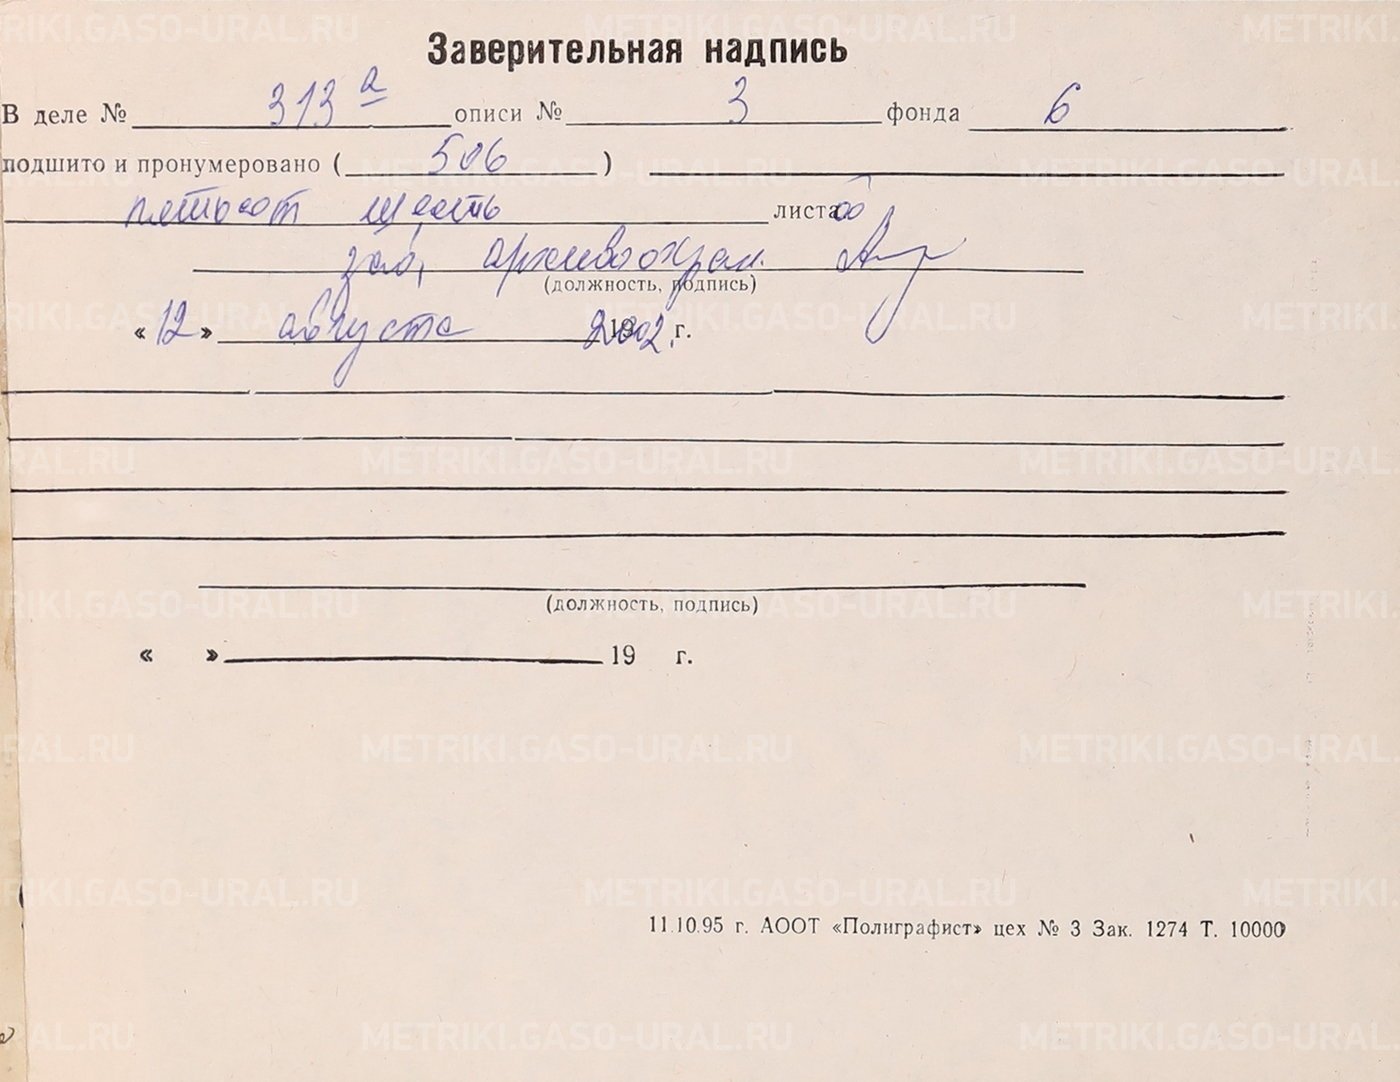 Заверительная надпись
В деле № 313 а описи № 3 фонда 6
подшито и пронумеровано ( 506 )
пятьсот шесть листов
зав. архивохран.
(должность, подпись)
« 12 » августа 2002 г.
(должность, подпись)
« » 19 г.
11.10.95 г. АООТ «Полиграфист» цех № 3 Зак. 1274 Т. 10000
METRIKI.GASO-URAL.RU